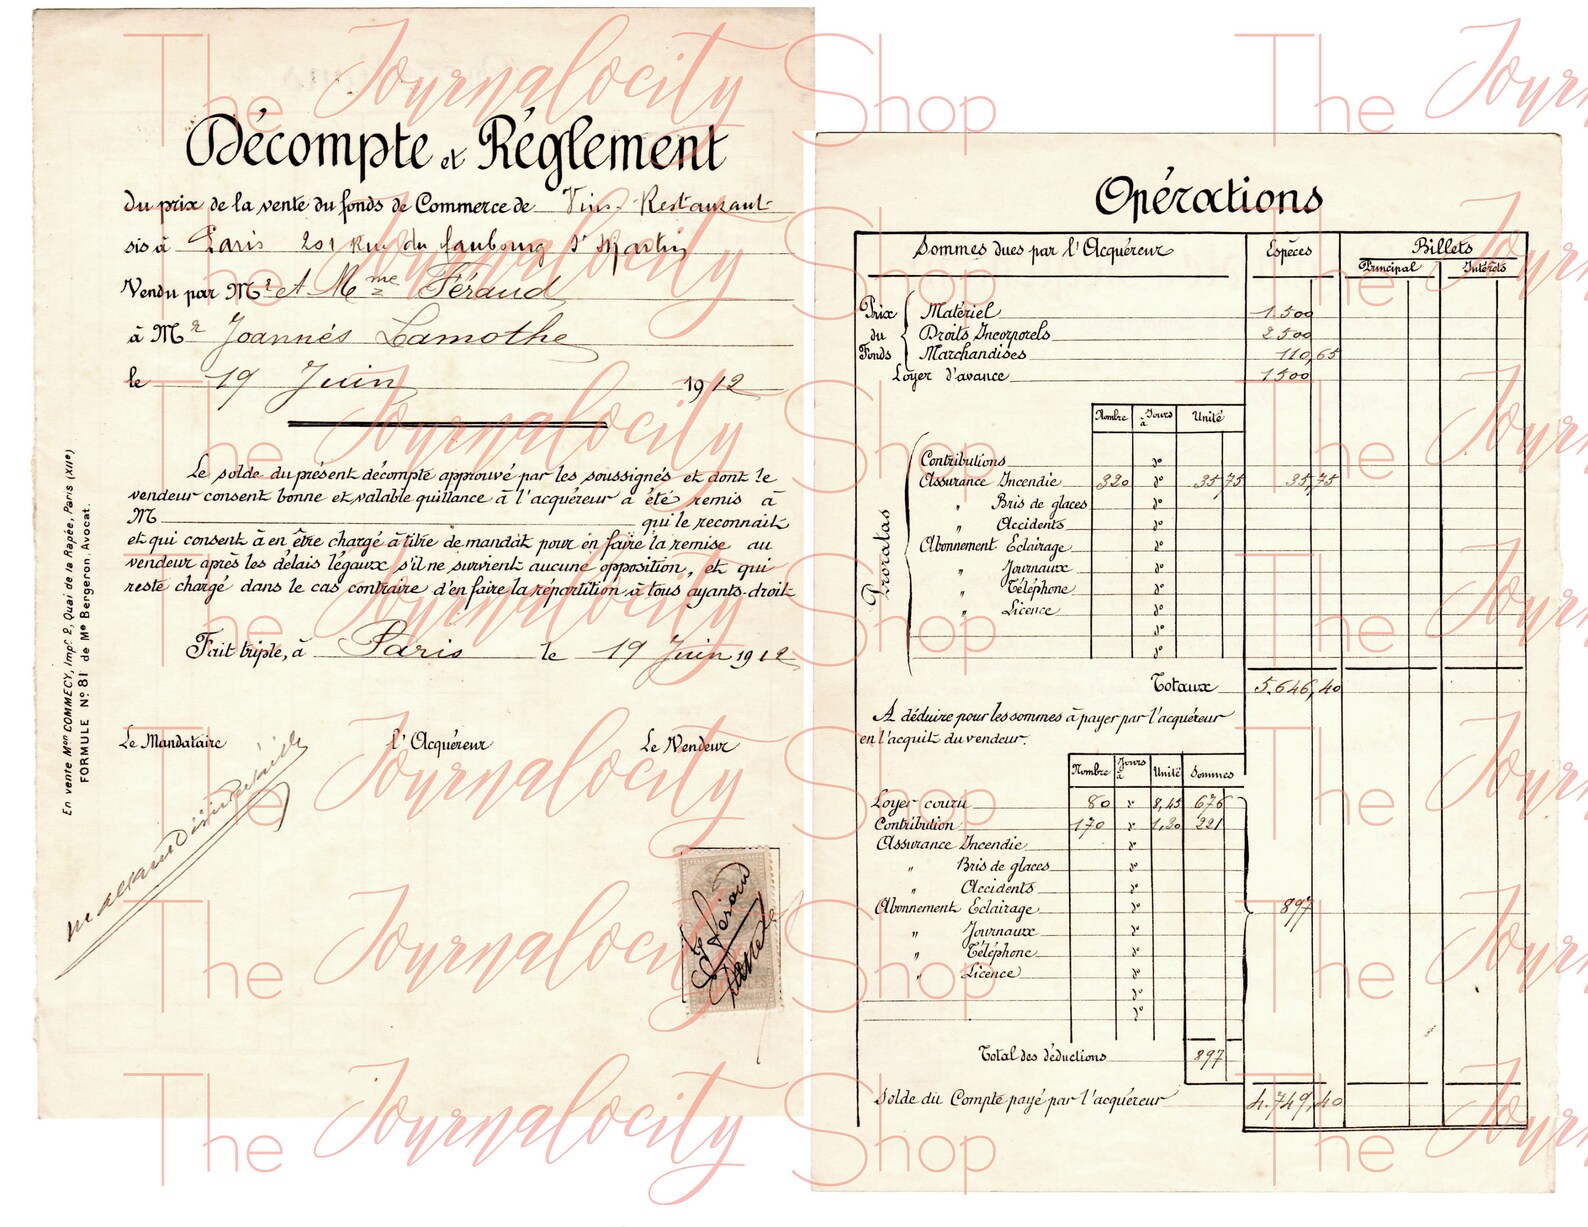 Décompte et Réglement
du prix de la vente du fonds de Commerce de Vins-Restaurant
sis à Paris 201 Rue du faubourg St Martin
Vendu par Mr et Mme Féraud
à Mr Joannés Lamothe
le 19 Juin 1912
Le solde du présent décompte approuvé par les soussignés et dont le
vendeur consent bonne et valable quittance à l'acquéreur a été remis à
M qui le reconnait
et qui consent à en être chargé à titre de mandat pour en faire la remise au
vendeur après les délais légaux s'il ne survient aucune opposition, et qui
reste chargé dans le cas contraire d'en faire la répartition à tous ayants-droit
Fait triple, à Paris le 19 Juin 1912
Le Mandataire l'Acquéreur Le Vendeur
En vente Mon COMMECY, Impr 2, Quai de la Rapée, Paris (XIIe)
FORMULE No 81 de Me Bergeron, Avocat.
Opérations
Sommes dues par l'Acquéreur Espèces Billets
Principal Intérêts
Prix du Fonds
Matériel 1.500
Droits Incorporels 2500
Marchandises 110,65
Loyer d'avance 1500
Nombre Jours à Unité
Proratas
Contributions do
Assurance Incendie 320 do 35,75 35,75
" Bris de glaces do
" Accidents do
Abonnement Eclairage do
" Journaux do
" Téléphone do
" Licence do
do
do
Totaux 5.646,40
A déduire pour les sommes à payer par l'acquéreur
en l'acquit du vendeur.
Nombre Jours à Unité Sommes
Loyer couru 80 do 8,45 676
Contribution 170 do 1,30 221
Assurance Incendie do
" Bris de glaces do
" Accidents do
Abonnement Eclairage do 897
" Journaux do
" Téléphone do
" Licence do
do
do
Total des déductions 897
Solde du Compte payé par l'acquéreur 4.749,40
The Journalocity Shop